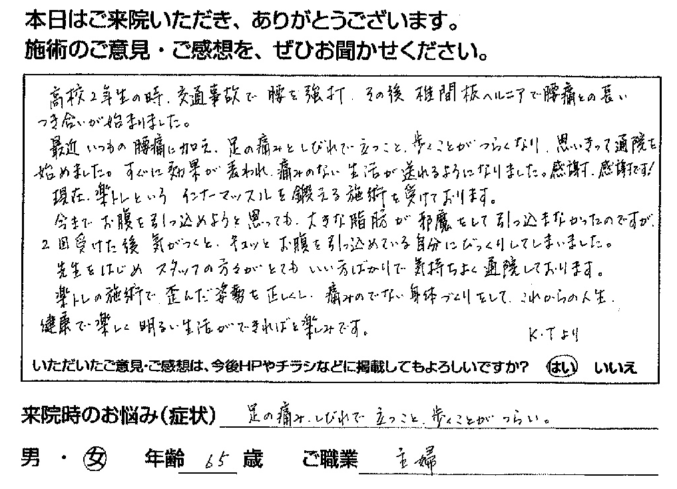 本日はご来院いただき、ありがとうございます。
施術のご意見・ご感想を、ぜひお聞かせください。
高校2年生の時、交通事故で腰を強打、その後椎間板ヘルニアで腰痛との長い
つき合いが始まりました。
最近いつもの腰痛に加え、足の痛みとしびれで立つこと、歩くことがつらくなり、思いきって通院を
始めました。すぐに効果が表われ、痛みのない生活が送れるようになりました。感謝、感謝です!
現在、楽トレというインナーマッスルを鍛える施術を受けております。
今までお腹を引っ込めようと思っても、大きな脂肪が邪魔をして引っ込まなかったのですが、
2回受けた後気がつくと、キュッとお腹を引っ込めている自分にびっくりしてしまいました。
先生をはじめスタッフの方々がとてもいい方ばかりで気持ちよく通院しております。
楽トレの施術で歪んだ姿勢を正しくし、痛みのでない身体づくりをして、これからの人生、
健康で楽しく明るい生活ができればと楽しみです。
K・Tより
いただいたご意見・ご感想は、今後HPやチラシなどに掲載してもよろしいですか? はい いいえ
来院時のお悩み(症状) 足の痛み、しびれで立つこと、歩くことがつらい。
男・女 年齢 65 歳 ご職業 主婦